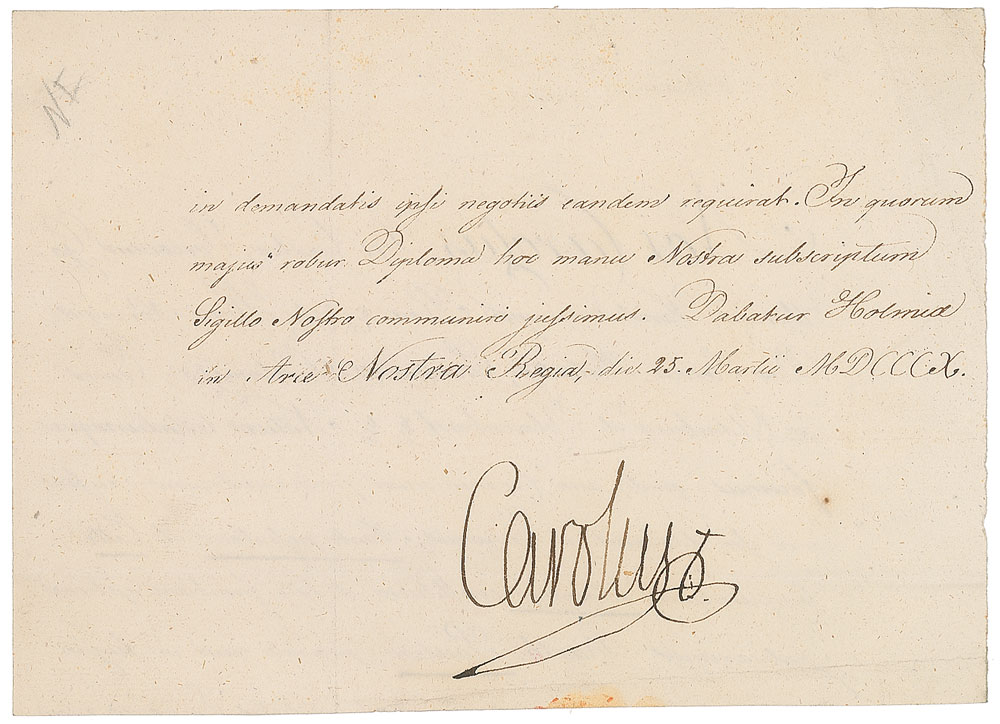 NI
in demandatis ipsi negotiis eandem requirat. In quorum
majus robur Diploma hoc manu Nostra subscriptum
Sigillo Nostro communiri jussimus. Dabatur Holmiæ
in Arce Nostra Regia, die 25. Martii MDCCCX.
Carolus